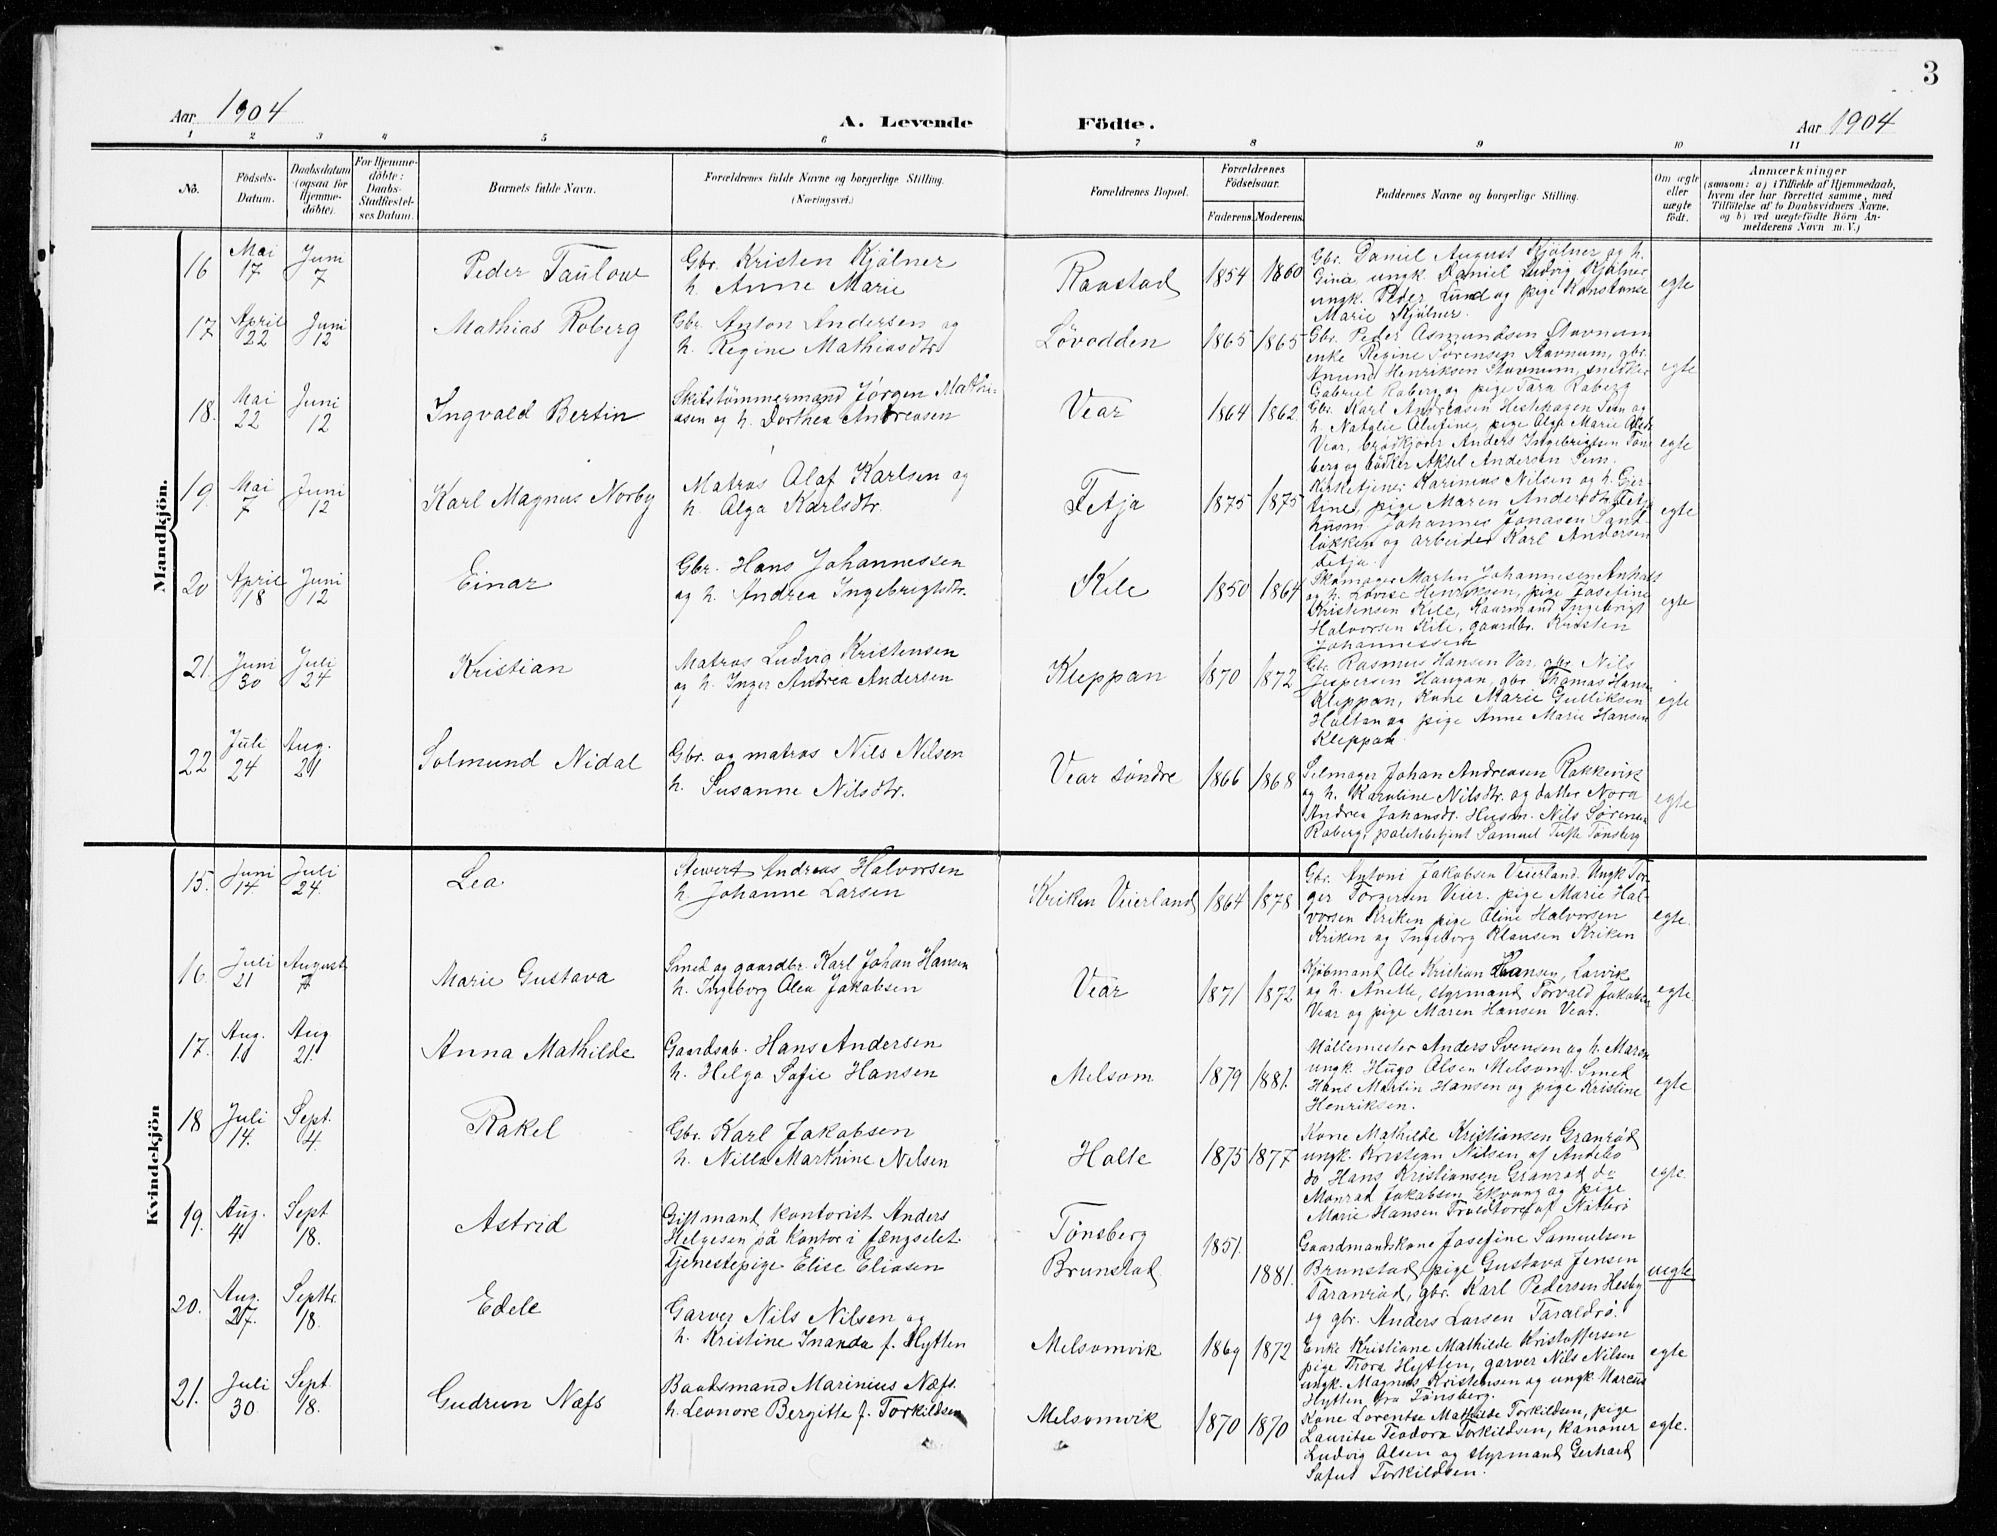 3
Aar 1904
A. Levende Födte.
Aar 1904
1 2 3 4 5 6 7 8 9 10 11
No.
Födsels-Datum.
Daabsdatum (ogsaa for Hjemme-döbte).
For Hjemme-döbte: Daabs-Stadfæstel-ses Datum.
Barnets fulde Navn.
Forældrenes fulde Navne og borgerlige Stilling. (Næringsvei.)
Forældrenes Bopæl.
Forældrenes Födselsaar.
Faderens. Moderens.
Faddernes Navne og borgerlige Stilling.
Om ægte eller uægte födt.
Anmærkninger
(saasom: a) i Tilfælde af Hjemmedaab, hvem der har forrettet samme, med Tilföielse af to Daabsvidners Navne, og b) ved uægtefödte Börn An-melderens Navn m. V.)
Mandkjön.
16 Mai 17 Juni 7 Peder Taulow
Gbr. Kristen Kjölner
h. Anne Marie
Raastad 1854 1860
Gbr. Daniel August Kjölner og h.
Gina ungk. Daniel Ludvig Kjölner
ungk. Peder Lund og pige Konstanse
Marie Kjölner.
egte
17 April 22 Juni 12 Mathias Roberg
Gbr. Anton Andersen og
h. Regine Mathiasdtr.
Lövodden 1865 1865
Gbr. Peder Asmundsen Stavnum
enke Regine Sörensen Stavnum, gbr.
Anund Henriksen Stavnum, snedker
Gabriel Roberg og pige Tara Roberg
egte
18. Mai 22 Juni 12 Ingvald Bertin
Skibstömmermand Jörgen Mathi-
asen og h. Dorthea Andreasen
Vear 1864 1862
Gbr. Karl Andreasen Hestehagen Sem og
h. Natalie Alufine, pige Olga Marie
Vear, brödkjörer Anders Ingebrigtsen Töns
berg og bödker Aksel Andersen Sem.
egte
19. Mai 7 Juni 12 Karl Magnus Norby
Matros Olaf Karlsen og
h. Olga Karlsdtr.
Tetja 1875 1875
Kirketjener Karinius Nilsen og h. Gjer-
tine, pige Maren Andersdtr. Tetje
husm. Johannes Jonasen Sand-
lökken og arbeider Karl Andersen
Tetja.
egte
20 April 18 Juni 12 Einar
Gbr. Hans Johannessen
og h. Andrea Ingebrigtsdtr.
Kile 1850 1864
Skomager Martin Johannesen
og h. Lovise Henriksen, pige Josefine
Kristensen Kile, Kaarmand Ingebrigt
Halvorsen Kile, gaardbr. Kristen
Johannessen
egte
21. Juni 30 Juli 24 Kristian
Matros Ludvig Kristensen
og h. Inger Andrea Andersen
Kleppan 1870 1872
Gbr. Rasmus Hansen Var, gbr. Nils
Jespersen Haugan, gbr. Thomas Hansen
Kleppan, Kone Marie Gulliksen
Holtan og pige Anne Marie Hansen
Kleppan.
egte
22 Juli 24 Aug. 21 Solmund Nidal
Gbr. og matros Nils Nilsen
h. Susanne Nilsdtr.
Vear söndre 1866 1868
Selmager Johan Andreasen Rakkevik
og h. Karoline Nilsdtr. og datter Nora
Andrea Johansdtr. Husm. Nils Sörensen
Roberg, politibetjent Samuel Tufte Tönsberg
egte
Kvindekjön
15. Juni 14. Juli 24. Lea.
Stewert Andreas Halvorsen
h. Johanne Larsen
Kriken Veierland 1864 1878
Gbr. Antoni Jakobsen Veierland. Ungk Tor-
ger Torgersen Veier. pige Marie Hal-
vorsen Kriken pige Oline Halvorsen
Kriken og Ingeborg Klausen Kriken
egte.
16. Juli 21 August 7 Marie Gustava
Smed og gaardbr. Karl Johan Hansen
h. Ingeborg Olea Jakobsen
Vear 1871 1872
Kjöbmant Ole Kristian Hansen, Larvik
og h. Anette, styrmand Torvald Jakobsen
Vear og pige Maren Hansen Vear.
egte.
17. Aug. 10 Aug 21. Anna Mathilde
Gaardsab. Hans Andersen
h. Helga Sofie Hansen
Melsom 1879 1881.
Möllemester Anders Svensen og h. Maren
ungk. Hugo Olsen Melsom. Smed
Hans Martin Hansen og pige Kristine
Henriksen.
egte
18 Juli 14. Sept. 4. Rakel
Gbr. Karl Jakobsen
h. Nilla Marthine Nilsen
Holte 1875 1877
Kone Mathilde Kristiansen Granröd
ungk. Kristian Nilsen af Andebo
do Hans Kristiansen Granröd do
Monrad Jakobsen Ekvang og pige
Marie Hansen Troldtorp af Nötterö
egte.
19. Aug. 4 Sept 18. Astrid
Gift mant kontorist Anders
Helgesen på kontor i fængselet.
Tjenestepige Elise Eliasen
Tönsberg
Brunstad
1851.
1881.
Gaardmandskone Josefine Samuelsen
Brunstad, pige Gustava Jensen
Taranröd, gbr. Karl Pedersen Hesby
og gbr. Anders Larsen Taraldrö.
uegte
20. Aug. 27. Septbr. 18. Edele
Garver Nils Nilsen og
h. Kristine Inanda f. Hytten
Melsomvik 1869 1872
Enke Kristiane Mathilde Kristoffersen
pige Thora Hytten, garver Nils Nilsen
ungk. Magnus Kristensen og ungk. Marcus
Hytten fra Tönsberg.
egte
21. Juli 30. Sept 18. Gudrun Næfs
Baadsmand Marinius Næfs.
h. Leonore Bergitte f. Torkildsen
Melsomvik 1870 1870
Kone Lorentse Mathilde Torkildsen, pige
Lauritse Teodora Torkildsen, kanoner
Ludvig Olsen og styrmand Gerhard
Sofus Torkildsen.
egte.